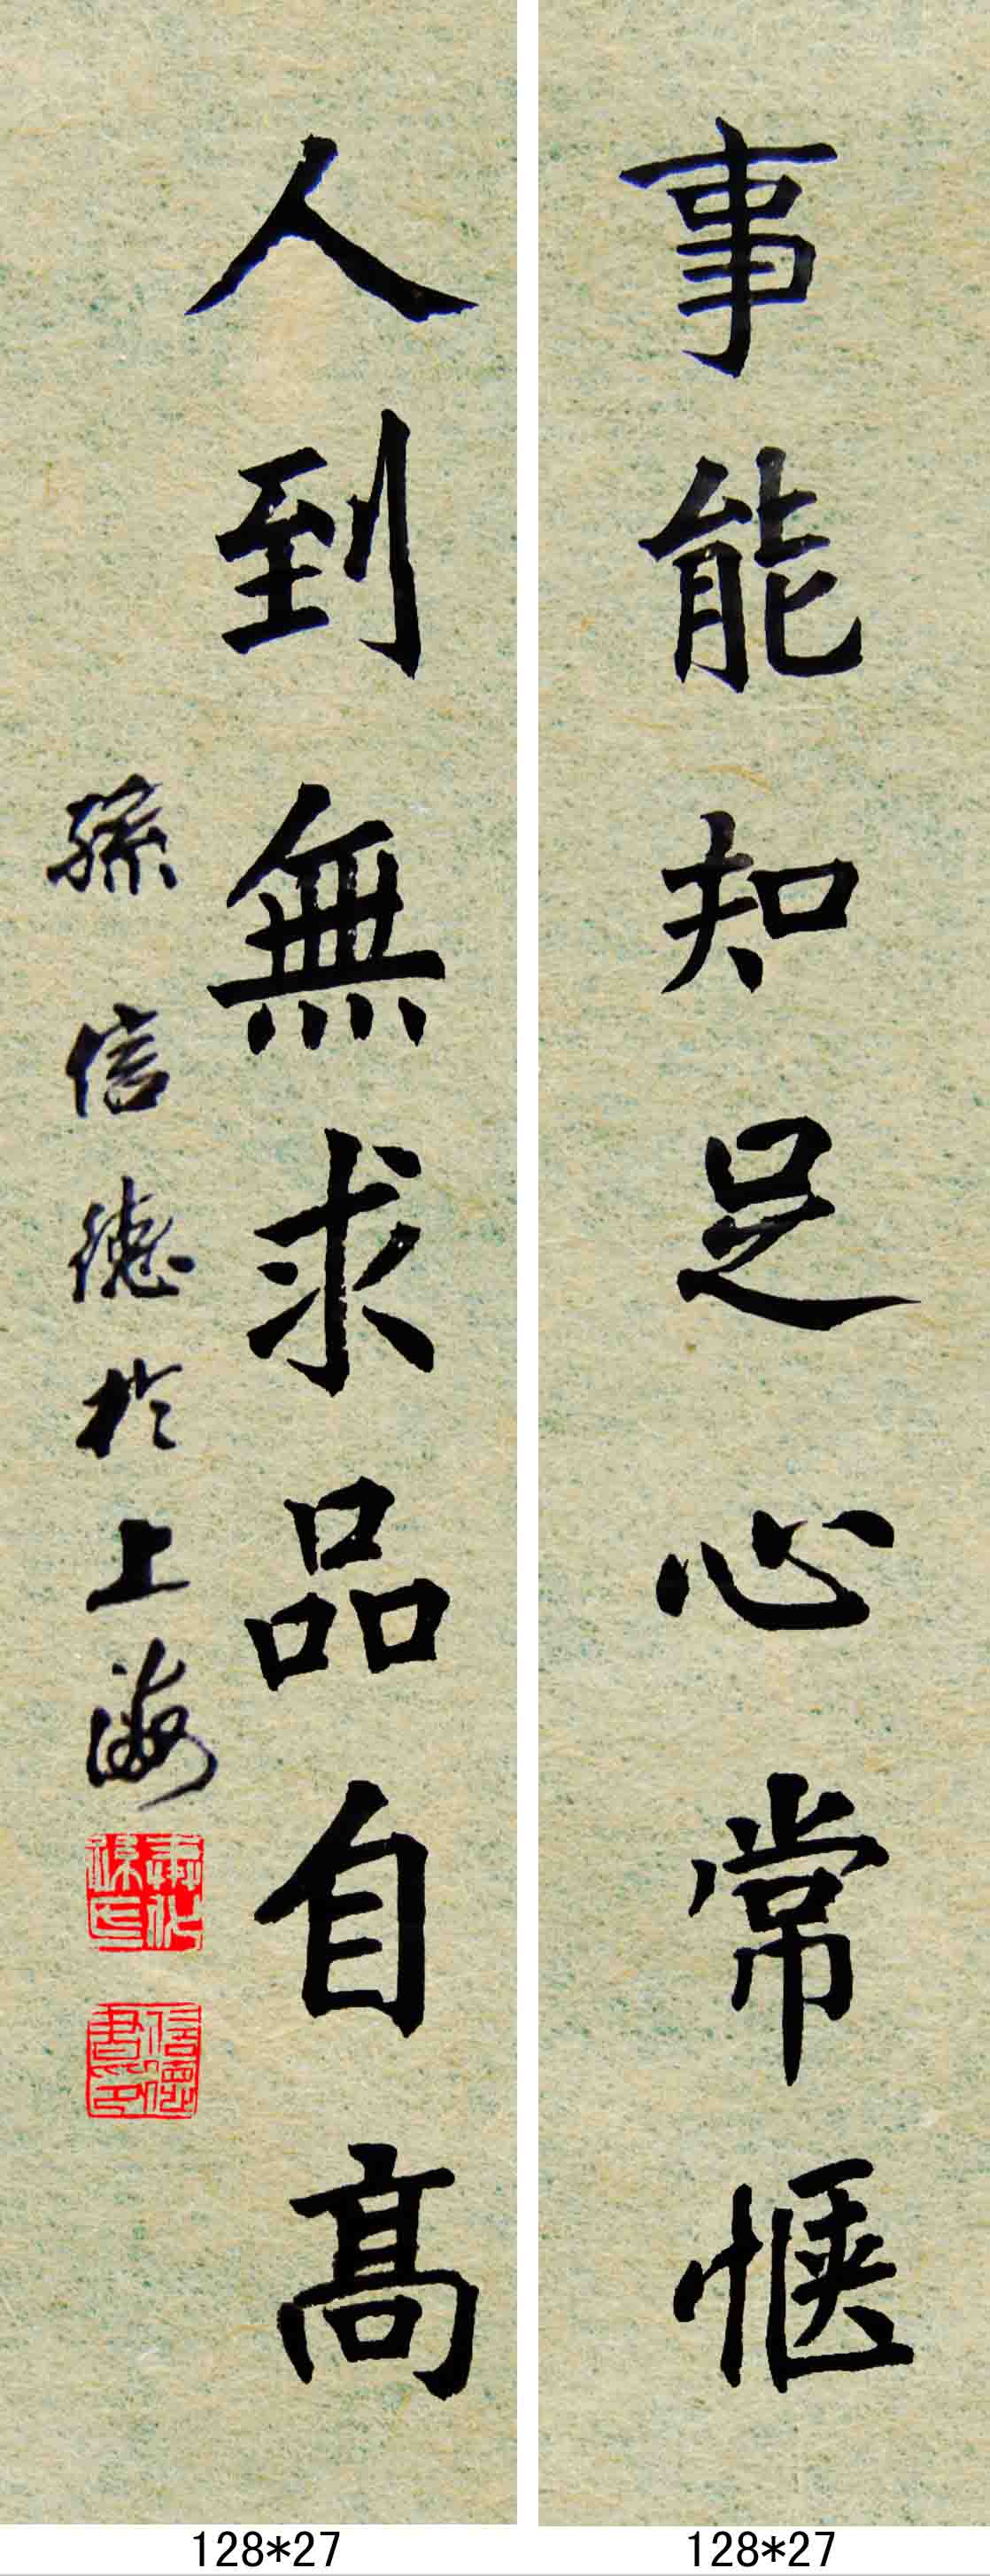 事能知足心常惬
人到無求品自高
孫信德於上海
信德書印
128*27
128*27